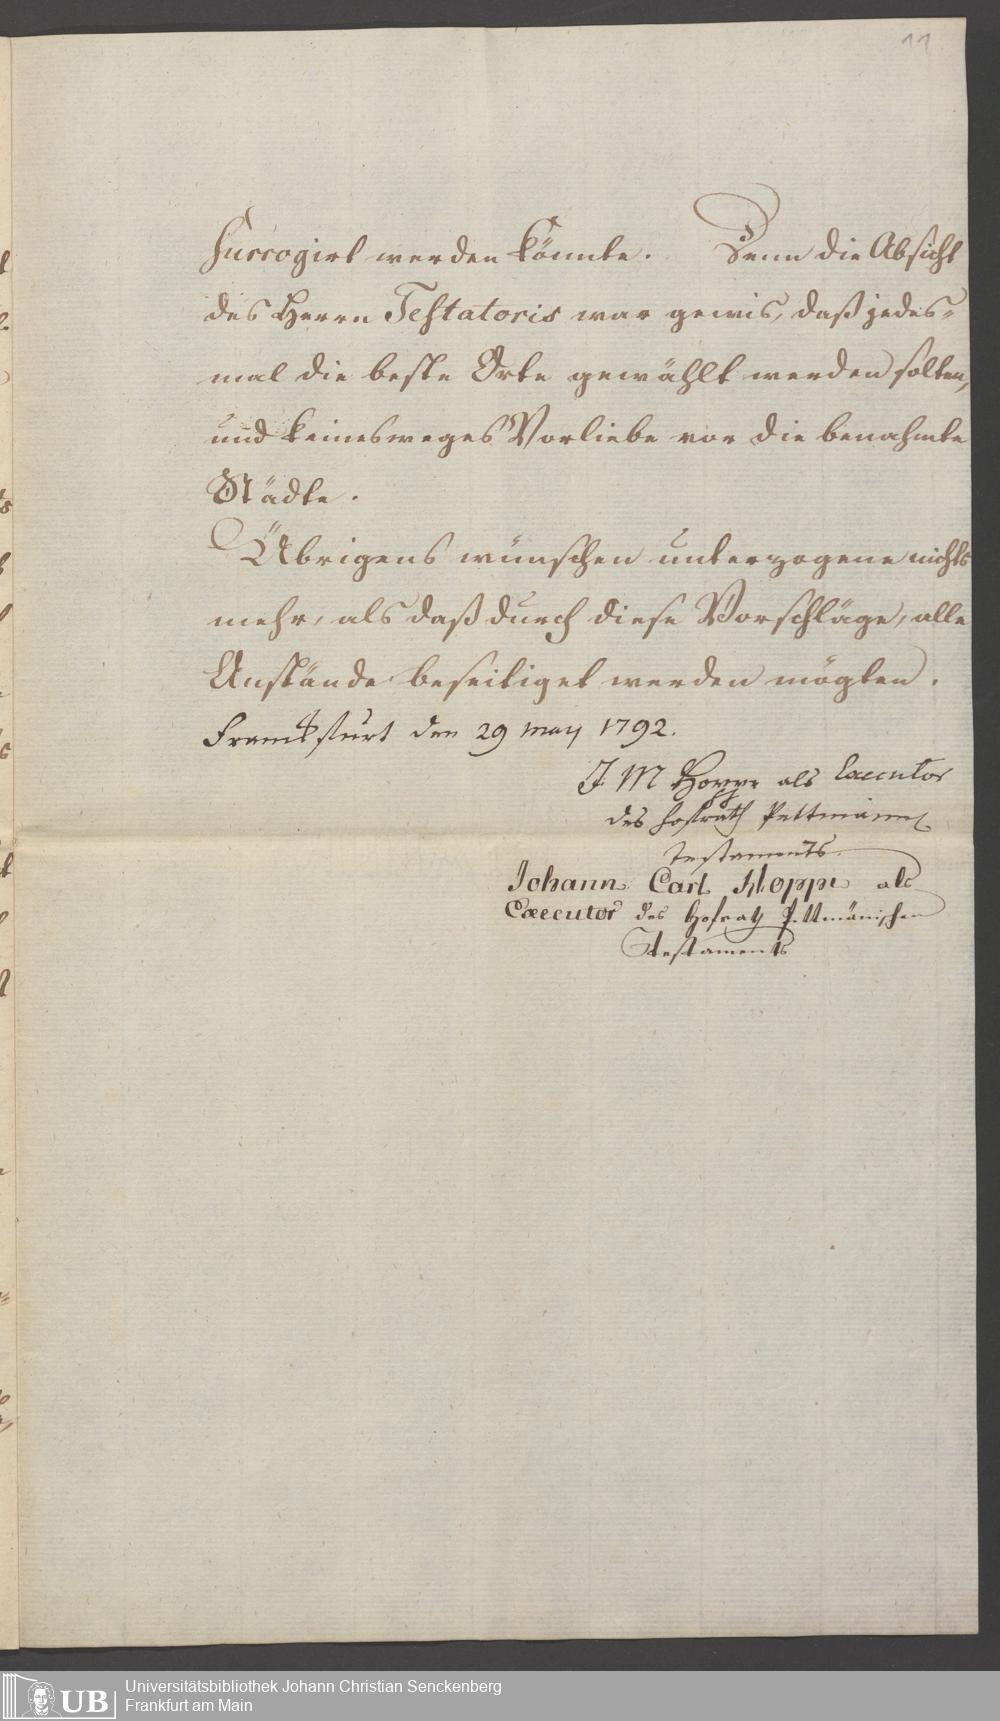 11
surrogirt werden könnte. Denn die Absicht
des Herrn Testatoris war gewis, daß jedes-
mal die beste Orte gewählt werden solten,
und keinesweges Vorliebe vor die benahmte
Städte.
Übrigens wünschen unterzogene nichts
mehr, als daß durch diese Vorschläge, alle
Anstände beseitiget werden mögten.
Franckfurt den 29 May 1792.
J M Hoppe als Executor
des Hofrath Pettmann
Testaments.
Johann Carl Hoppe als
Executor des Hofrath Pettmänischen
Testaments
UB
Universitätsbibliothek Johann Christian Senckenberg
Frankfurt am Main